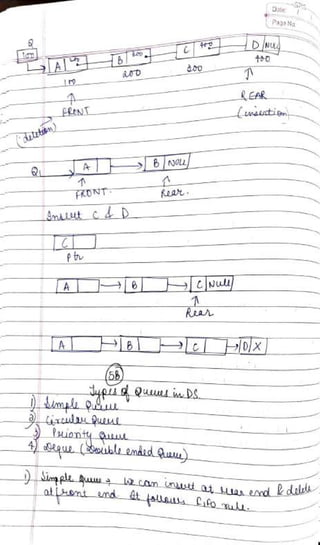 Date:
Page No.
Q
100
A 200 B 300 C 400 D NULL
100 200 300 400
FRONT
(deletion)
REAR
(insertion)
Q A B NULL
FRONT. Rear.
Insert C & D
C
Ptr
A B C NULL
Rear
A B C D X
5B
Types of Queues in DS.
1) Simple Queue
2) Circular Queue
3) Priority Queue
4) Deque (Double ended Queue)
1) Simple Queue → We can insert at rear end & delete
at front end It follows FIFO rule.